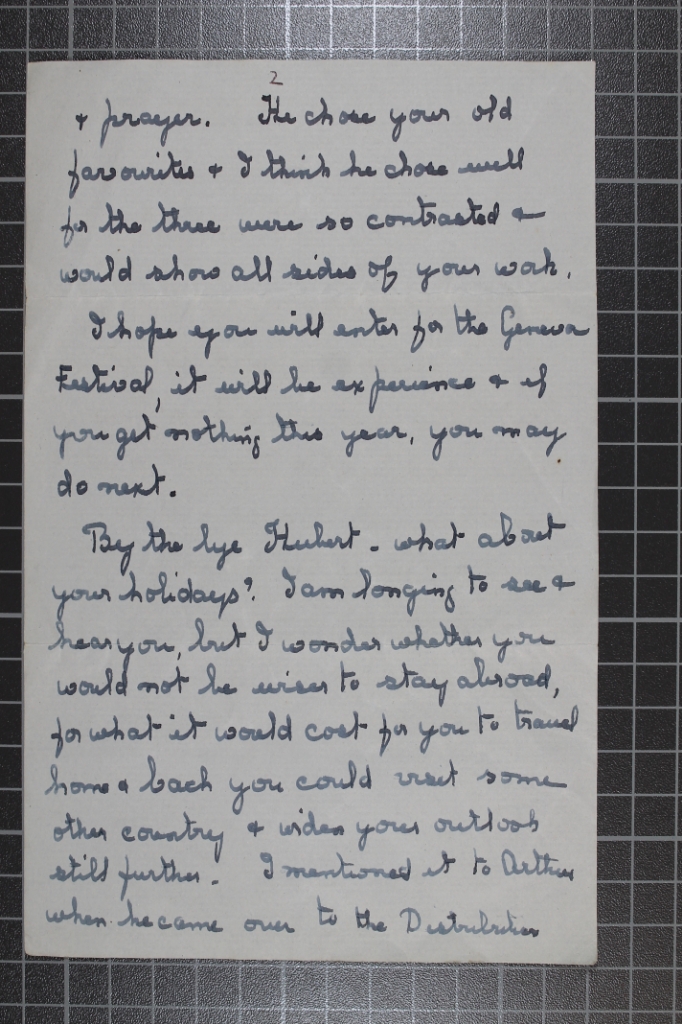 2
& prayer. He chose your old
favourites & I think he chose well
for the three were so contrasted &
would show all sides of your work.
I hope you will enter for the Geneva
Festival, it will be experience & if
you get nothing this year, you may
do next.
By the bye Hubert - what about
your holidays? I am longing to see &
hear you, but I wonder whether you
would not be wiser to stay abroad,
for what it would cost for you to travel
home & back you could visit some
other country & widen your outlook
still further. I mentioned it to Arthur
when he came over to the Distribution